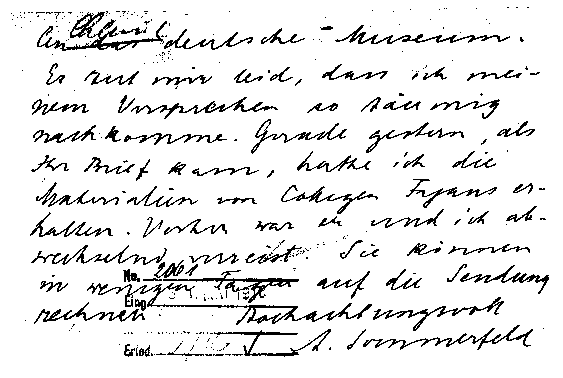 Chemie
An das deutsche Museum.
Es tut mir leid, dass ich mei-
nem Versprechen so säumig
nachkomme. Gerade gestern, als
Ihr Brief kam, hatte ich die
Materialien von Collegen Fajans er-
halten. Vorher war er und ich ab-
wechselnd verreist. Sie können
No. 2061
in wenigen Tagen auf die Sendung
Eing.
rechnen Hochachtungsvoll
Erled. A. Sommerfeld